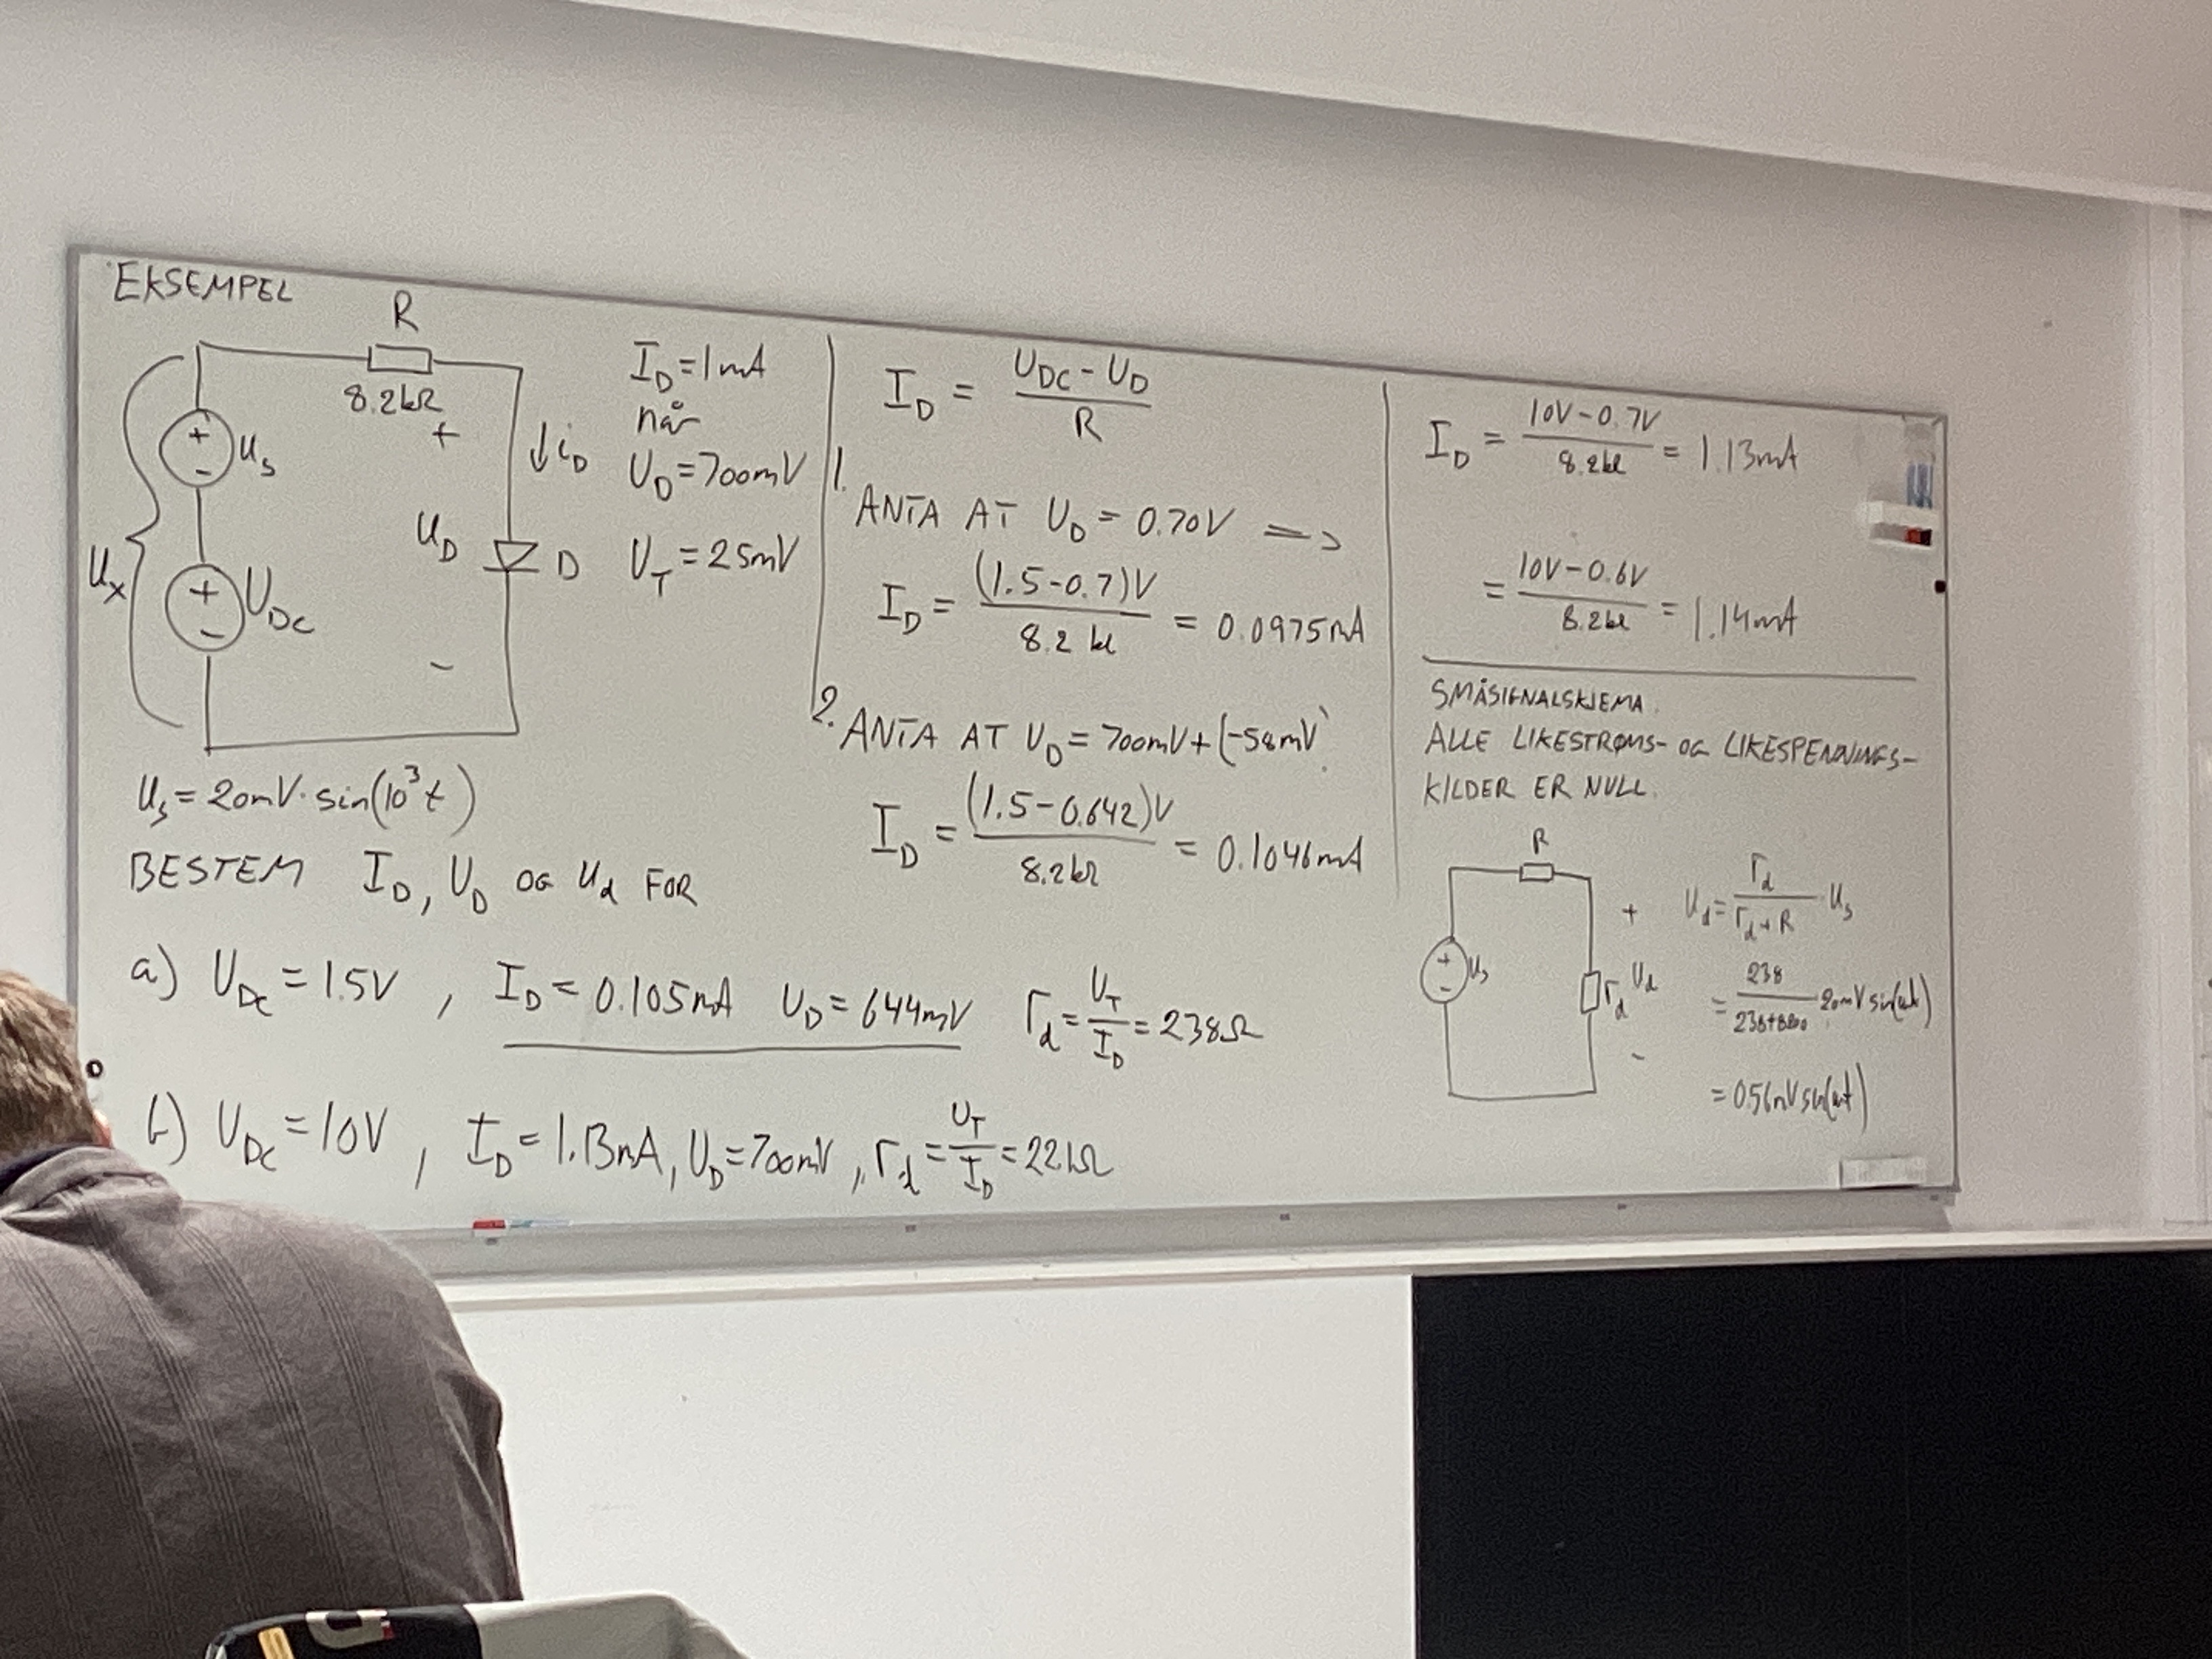 EKSEMPEL
R
8.2kΩ
+
u_s
+
-
u_x
+
-
U_DC
↓i_D
u_D
D
-
I_D = 1mA
når
U_D = 700mV
U_T = 25mV
u_s = 20mV · sin(10³t)
BESTEM I_D, U_D OG u_d FOR
a) U_DC = 1.5V , I_D = 0.105mA U_D = 644mV r_d = U_T / I_D = 238Ω
b) U_DC = 10V , I_D = 1.13mA, U_D = 700mV, r_d = U_T / I_D = 22.1Ω
I_D = (U_DC - U_D) / R
1.
ANTA AT U_D = 0.70V =>
I_D = (1.5 - 0.7)V / 8.2 kΩ = 0.0975mA
2. ANTA AT U_D = 700mV + (-58mV)
I_D = (1.5 - 0.642)V / 8.2kΩ = 0.1046mA
I_D = 10V - 0.7V / 8.2kΩ = 1.13mA
= 10V - 0.6V / 8.2kΩ = 1.14mA
SMÅSIGNALSKJEMA.
ALLE LIKESTRØMS- OG LIKESPENNINGS-
KILDER ER NULL.
R
+
-
u_s
+
r_d
u_d
-
u_d = r_d / (r_d + R) · u_s
= 238 / (238+8200) · 20mV sin(ωt)
= 0.56mV sin(ωt)